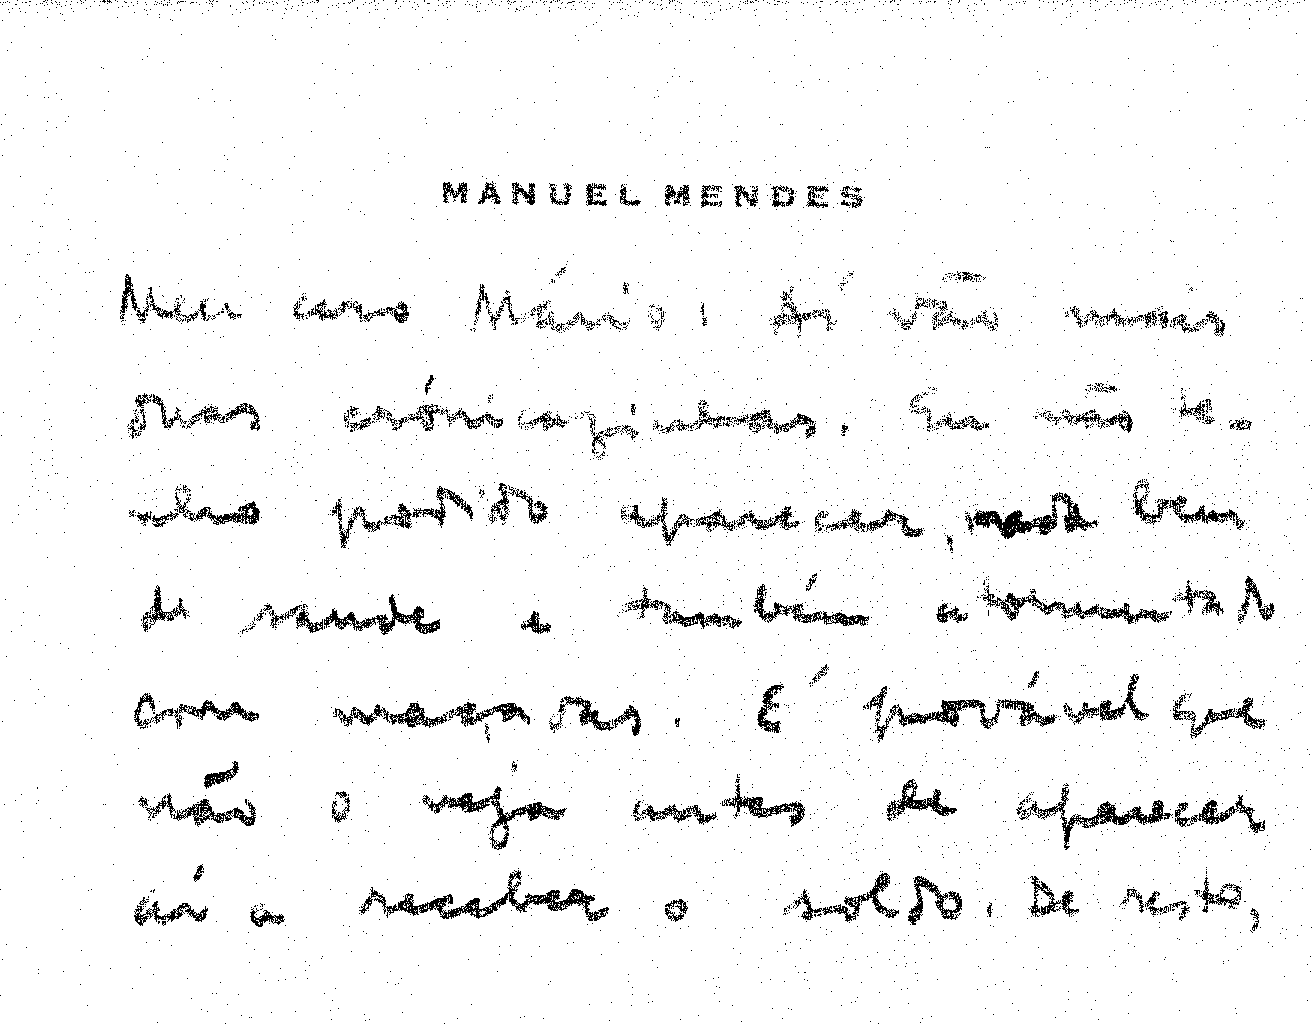 MANUEL MENDES
Meu caro Mário! Aí vão mais
duas crónicazinhas. Eu não te-
nho podido aparecer, nada bem
de saude e também atormentado
com maçadas. É provável que
não o veja antes de aparecer
aí a receber o soldo. De resto,